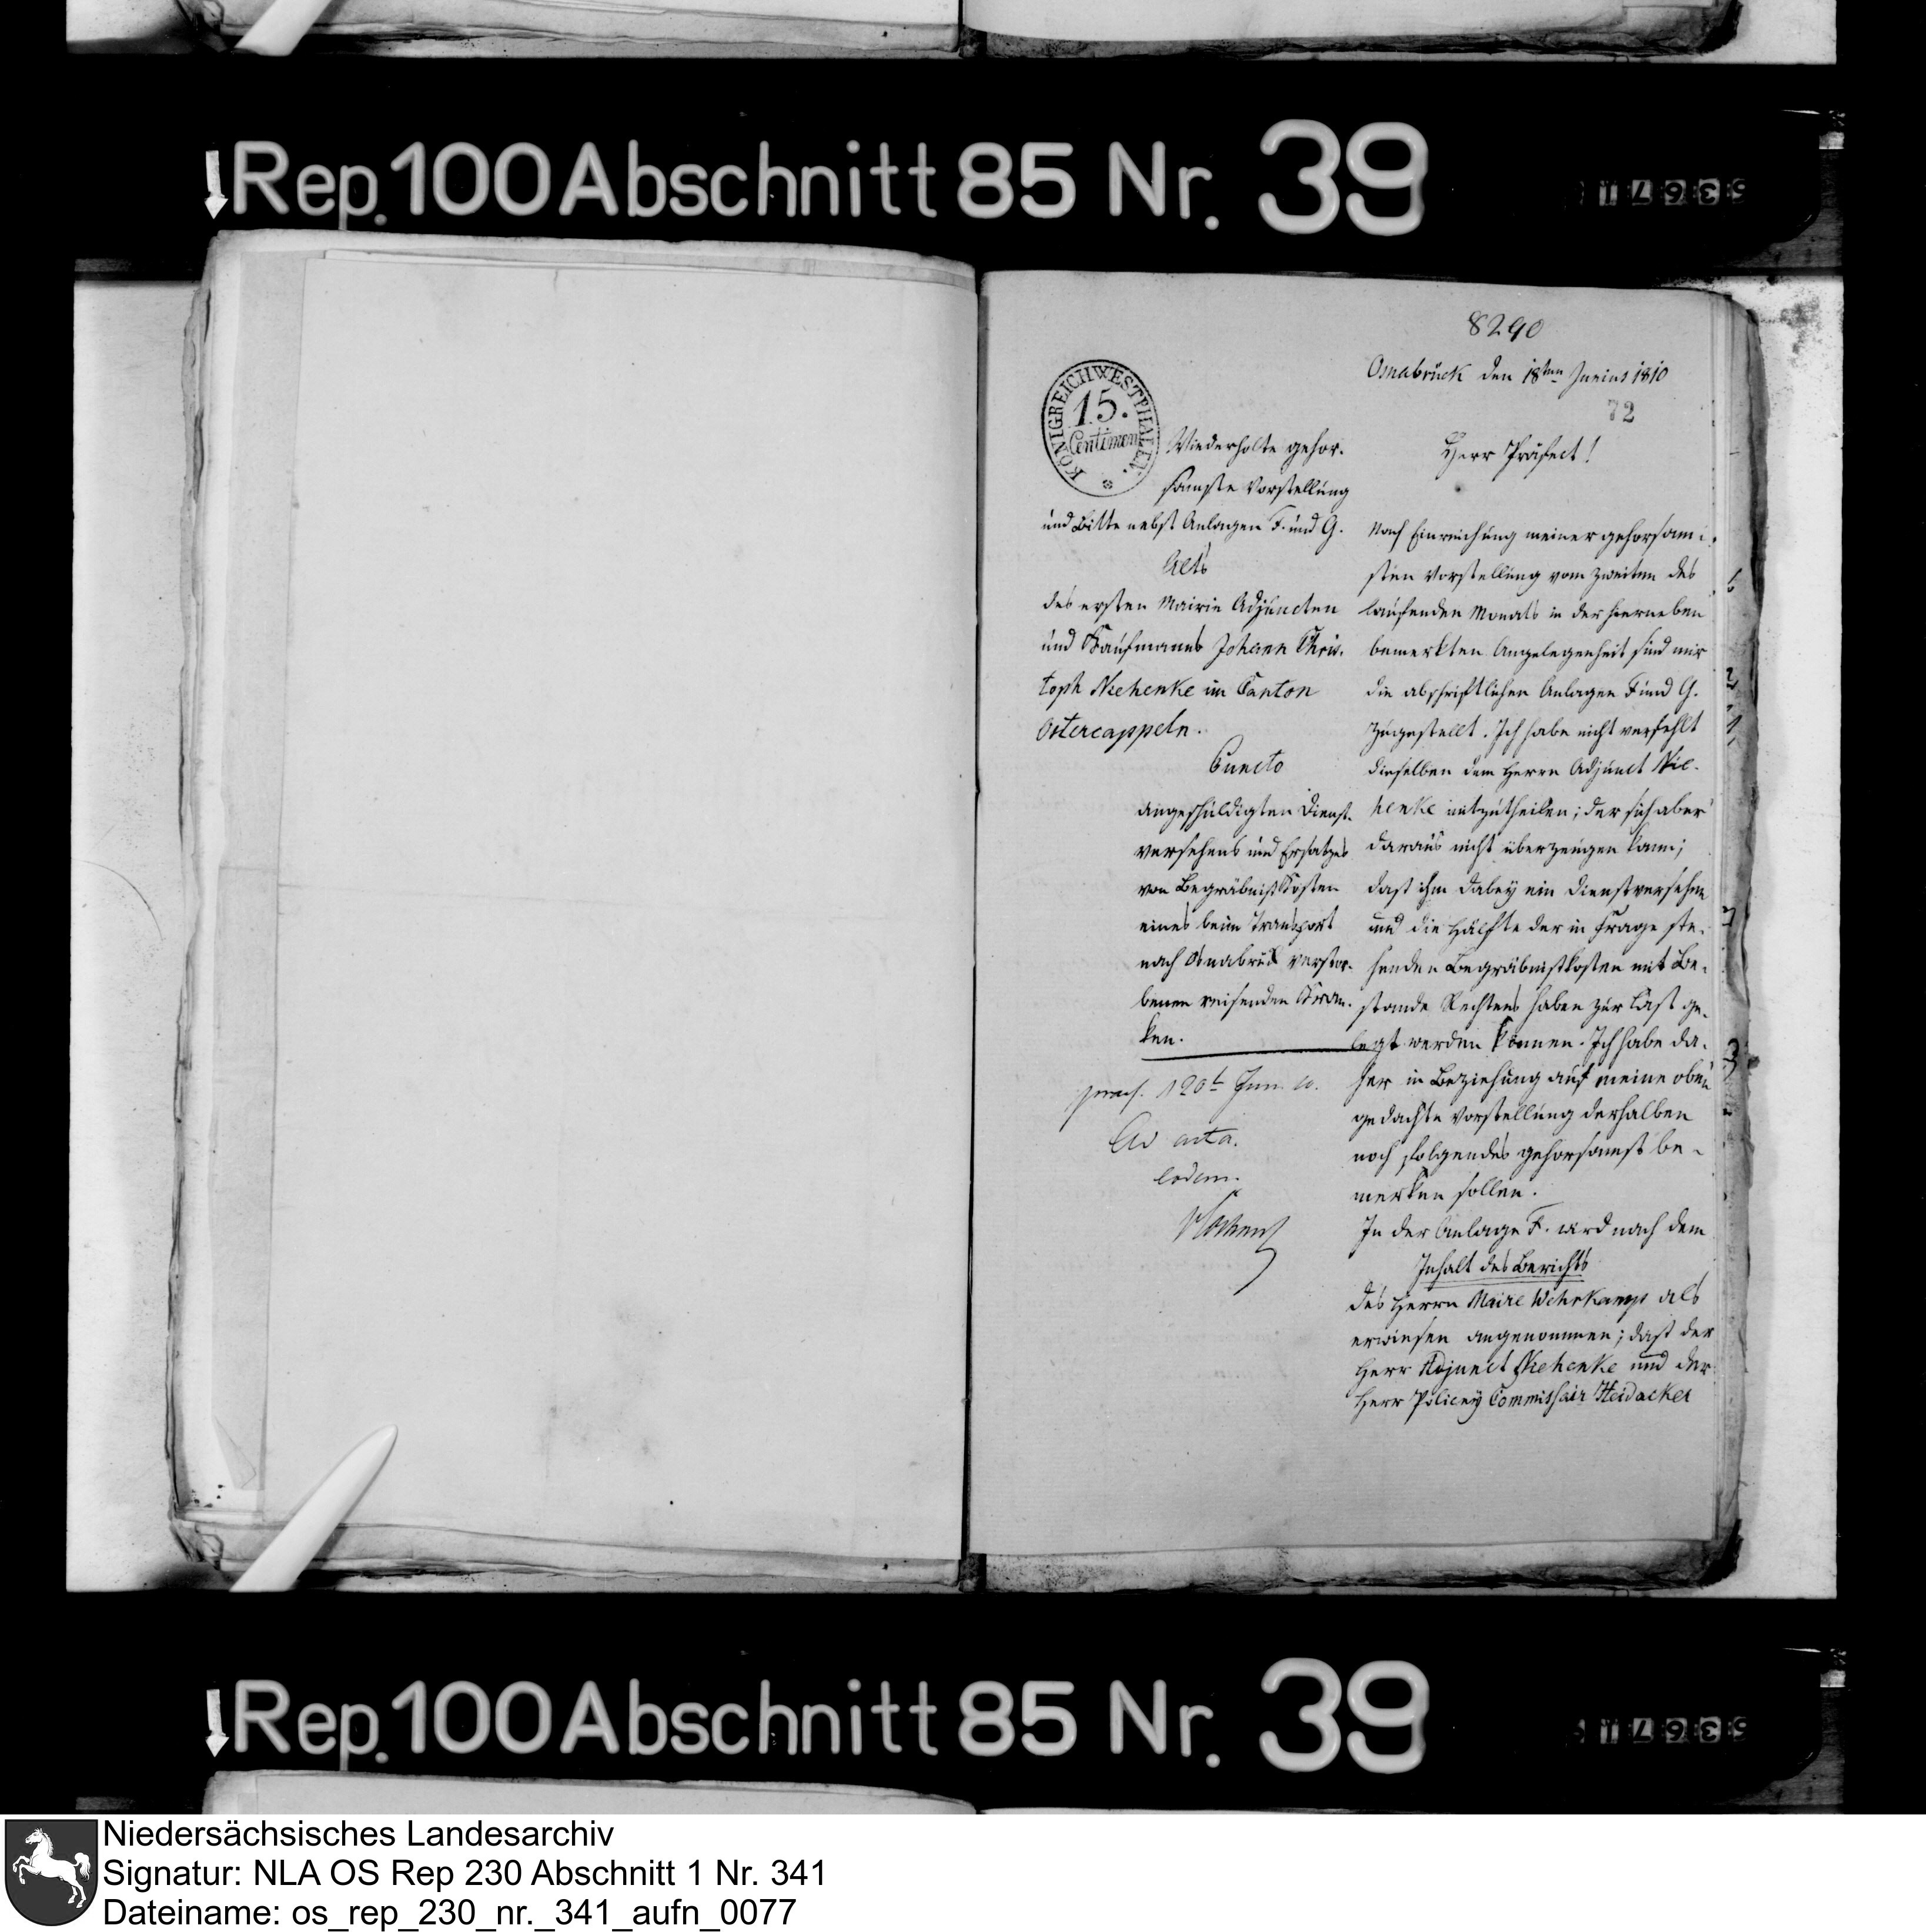 Rep. 100 Abschnitt 85 Nr. 39
8290
Osnabrück den 18ten Junius 1810
72
KÖNIGREICH WESTPHALEN.
15.
Centimen
Wiederholte gehor-
samste Vorstellung
und Bitte nebst Anlagen F. und G.
des ersten Mairie Adjuncten
und Kaufmanns Johann Chris-
toph Niehenke im Canton
Ostercappeln.
Puncto
angeschuldigten Dienst-
versehens und Ersatzes
von Begräbniß Kosten
eines beim Transport
nach Osnabrück verstor-
benen reisenden Kran-
ken.
praes. 20t Jun. 10.
Ad acta.
eodem.
Herr Präfect!
Nach Einreichung meiner gehorsam-
sten Vorstellung vom zweiten des
laufenden Monats in der hierneben
bemerkten Angelegenheit sind mir
die abschriftlichen Anlagen F und G.
zugestellt. Ich habe nicht verfehlt
dieselben dem Herrn Adjunct Nie-
henke mitzutheilen; der sich aber
daraus nicht überzeugen kann;
daß ihm dabey ein Dienstversehen
und die Hälfte der in Frage ste-
henden Begräbnißkosten mit Be-
stande Rechtens haben zur Last ge-
legt werden können. Ich habe da-
her in Beziehung auf meine oben
gedachte Vorstellung derhalben
noch folgendes gehorsamst be-
merken sollen.
In der Anlage F. wird nach dem
Inhalt des Berichts
des Herrn Maire Wehrkamp als
erwiesen angenommen; daß der
Herr Adjunct Niehenke und der
Herr Policey Commissair Heidacker
Rep. 100 Abschnitt 85 Nr. 39
Niedersächsisches Landesarchiv
Signatur: NLA OS Rep 230 Abschnitt 1 Nr. 341
Dateiname: os_rep_230_nr._341_aufn_0077